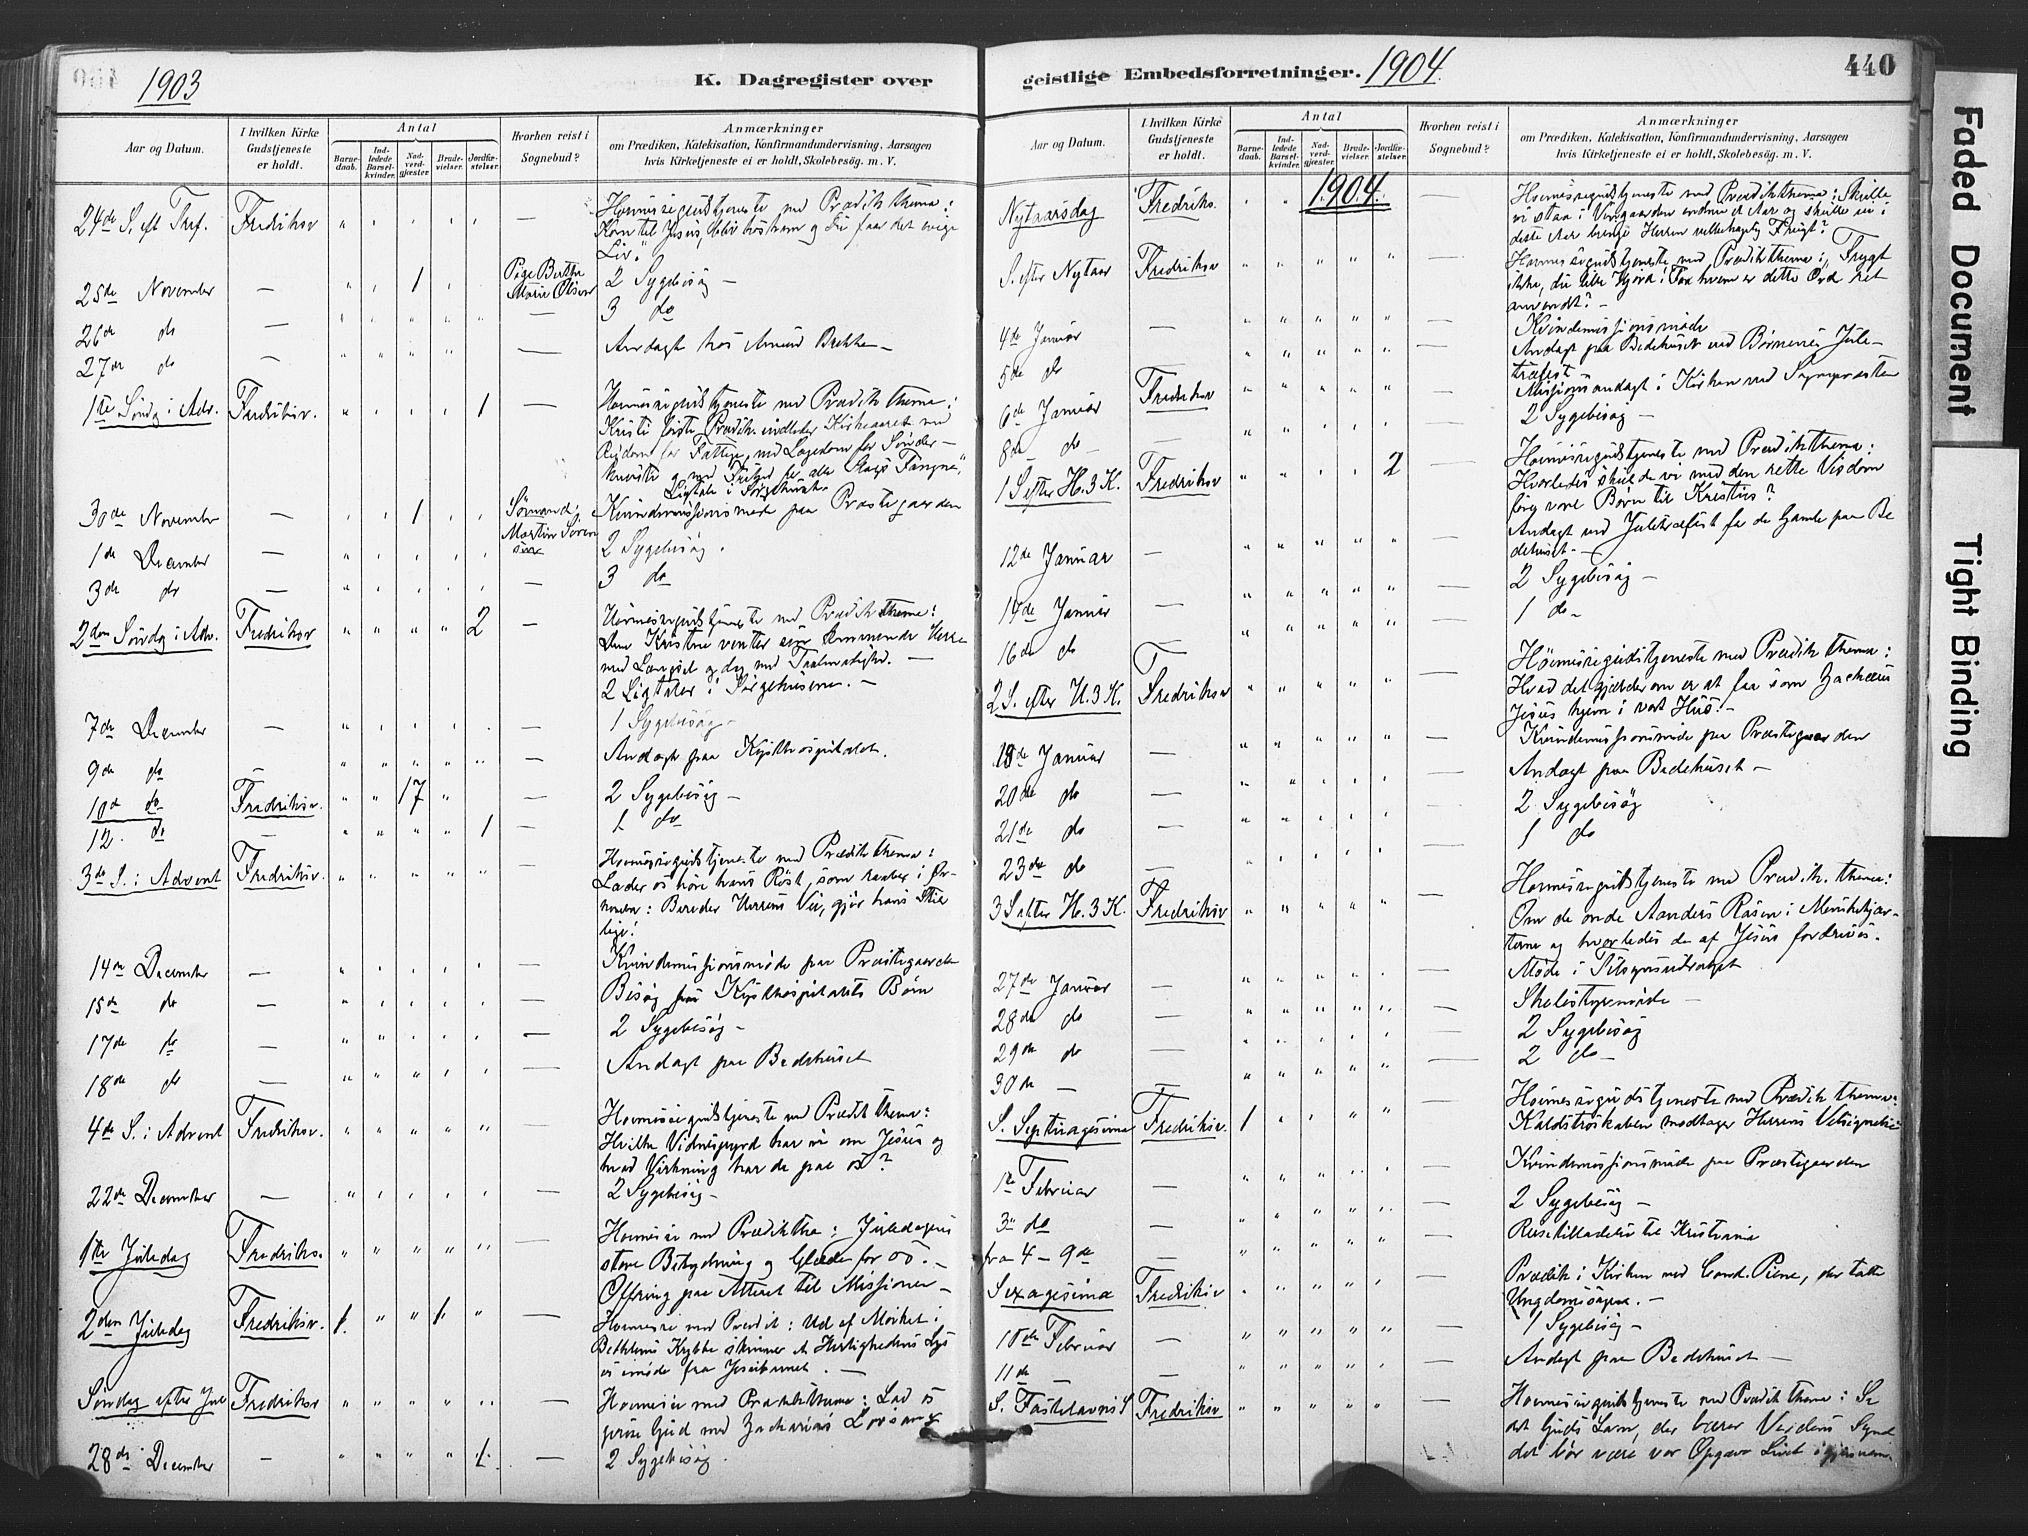 1903
K. Dagregister over
Aar og Datum.
I hvilken Kirke Gudstjeneste er holdt.
Antal
Barnedaab.
Indledede Barselkvinder.
Nadverdgjæster
Brudevielser.
Jordfæstelser.
Hvorhen reist i Sognebud?
Anmærkninger
om Prædiken, Katekisation, Konfirmandundervisning, Aarsagen
hvis Kirketjeneste ei er holdt, Skolebesög. m. V.
24de S. eft Tref. Fredriksv " " " " " — Høimessegudstjeneste med Prædikthema:
Kom til Jesus, bliv hos ham og Du faar det evige
Liv."
25de November — " " 1 " " Pige Berthe Marie Olsen 2 Sygebesøg —
26de do — " " " " " — 3 do
27de do — " " " " — Andagt hos Amund Brekke —
1ste Søndg i Adv. Fredriksv. " " " " 1 — Høimessegudstjeneste med Prædikthema:
Kristi første Prædik. indleder Kirkeaaret med
Rigdom for Fattige, med Lægedom for Sønder-
knuste og med Frihed for alle Slags Fangne,"
Ligtale i Sørgehuset.
30de November — " " 1 " " Sømand Martin Sørensen Kvindemissionsmøde paa Præstegaarden
1de December — " " " " " 2 Sygebesøg.
3de do — " " " " — 3 do
2den Søndg i Adv. Fredriksv " " " " 2 — Høimessegudstjeneste med Prædikthema:
Den Kristne venter sin kommende Herre
med Længsel og dog med Taalmodighed. —
2 Ligtaler i Sørgehusene. —
7de December — " " " " " — 1 Sygebesøg —
9de do — " " " " " — Andagt paa Kysthospitalet.
10de do Fredriksv. " " 17 " — 2 Sygebesøg —
12. do — " " " " 1 — 1 do
3de S. i Advent Fredriksv. " " " " " — Høimessegudstjeneste med Prædikthema:
Lader os høre hans Røst, som raaber i Ør-
kenen: Bereder Herrens Vei, gjør hans Stier
lige!
14de December — " " " " " — Kvindemissionsmøde paa Præstegaarden
15de do — " " " " " — Besøg fra Kysthospitalets Børn
17de do — " " " " " — 2 Sygebesøg —
18de do — " " " " " — Andagt paa Bedehuset
4de S. i Advent Fredriksv. " " " " " — Høimessegudstjeneste med Prædikthema:
Hvilke Vidnesbyrd har vi om Jesus og
hvad Virkning har de paa os?
22de December — " " " " " — 2 Sygebesøg —
1ste Juledag Fredriksv. " " " " " — Høimesse med Prædikthe: Juledagens
store Betydning og Glæde for os. —
Offring paa Alteret til Missionen —
2den Juledag Fredriksv. 1. " " 1 " — Høimesse med Prædik: Ud af Mørket i
Bethlems Krybbe skinner et Herlighedens Lys
os imøde fra Jesubarnet. —
Søndag efter Jul Fredriksv " " " " " — Høimesse med Prædikthema: Lad os
prise Gud med Zacharias Lovsang
28de December — " " " " 1. — 2 Sygebesøg.
geistlige Embedsforretninger. 1904
440
Aar og Datum.
I hvilken Kirke Gudstjeneste er holdt.
Antal
Barnedaab.
Indledede Barselkvinder.
Nadverdgjæster
Brudevielser.
Jordfæstelser.
Hvorhen reist i Sognebud?
Anmærkninger
om Prædiken, Katekisation, Konfirmandundervisning, Aarsagen
hvis Kirketjeneste ei er holdt, Skolebesög. m. V.
1904.
Nytaarsdag Fredriksv. " " — Høimessegudstjeneste med Prædikthema: Skulle
vi staa i Vingaarden endnu et Aar og skulle vi i
dette Aar bringe Herren velbehagelig Frugt?
S. efter Nytaar Fredriksv " " " " " — Høimessegudstjeneste med Prædikthema: Frygt
ikke, du lille Hjord! For hvem er dette Ord ret
anvendt? —
4de Januar — " " " " " — Kvindemissionsmøde
5de do " " " " " — Andagt paa Bedehuset ved Børnenes Jule-
træfest
6de Januar Fredriksv " " " " " — Missionsandagt i Kirken ved Sognepræsten
8de do — " " " " " — 2 Sygebesøg —
1 S. efter H. 3 K. Fredriksv " " " " 2 — Høimessegudstjeneste med Prædikthema:
Hvorledes skulde vi med den rette Visdom
føre vore Børn til Kristus?
12de Januar — " " " " " — Andagt ved Juletræfest for de Gamle paa Be
dehuset. —
14de Januar — " " " " " — 2 Sygebesøg —
16de do — " " " " " — 1 do —
2 S. efter H. 3 K. Fredriksv " " " " " — Høimessegudstjeneste med Prædikthema:
Hvad det gjælder om er at faa som Zachæus
Jesus hjem i vort Hus. —
18de Januar — " " " " " — Kvindemissionsmøde paa Præstegaarden
20de do — " " " " " — Andagt paa Bedehuset —
21de do — " " " " " — 2 Sygebesøg
23de do — " " " " " — 1 do
3 S. efter H. 3 K. Fredriksv " " " " " — Høimessegudstjeneste med Prædik. thema:
Om de onde Aanders Rasen i Menskehjær-
terne og hvorledes de af Jesus fordrives.
27de Januar — " " " " " — Møde i Tilsynsudvalget
28de do — " " " " " — Skolestyremøde —
29de do — " " " " " — 2 Sygebesøg
30de — " " " " " — 2 do —
S. Septuagesima Fredriksv. 1 " " " " — Høimessegudstjeneste med Prædikthema:
Kaldstroskaben modtager Herrens Velsignelse
1ste Februar — " " " " " — Kvindemissionsmøde paa Præstegaarden
3de do — " " " " " — 2 Sygebesøg —
fra 4 – 9de — " " " " " — Reisetilladelse til Kristiania
Sexagesima Fredriksv " " " " " — Prædik i Kirken ved Cand. Piene, der talte
Ungdomssagen. —
10de Februar — " " " " " — 1 Sygebesøg —
11de — " " " " " — Andagt paa Bedehuset —
S. Fastelavns S Fredriksv " " " " " — Høimessegudstjeneste med Prædikthema: Se
det Guds Lam, der bærer Verdens Synd
det bør være vor Opgave Livet igjennem
Faded Document
Tight Binding